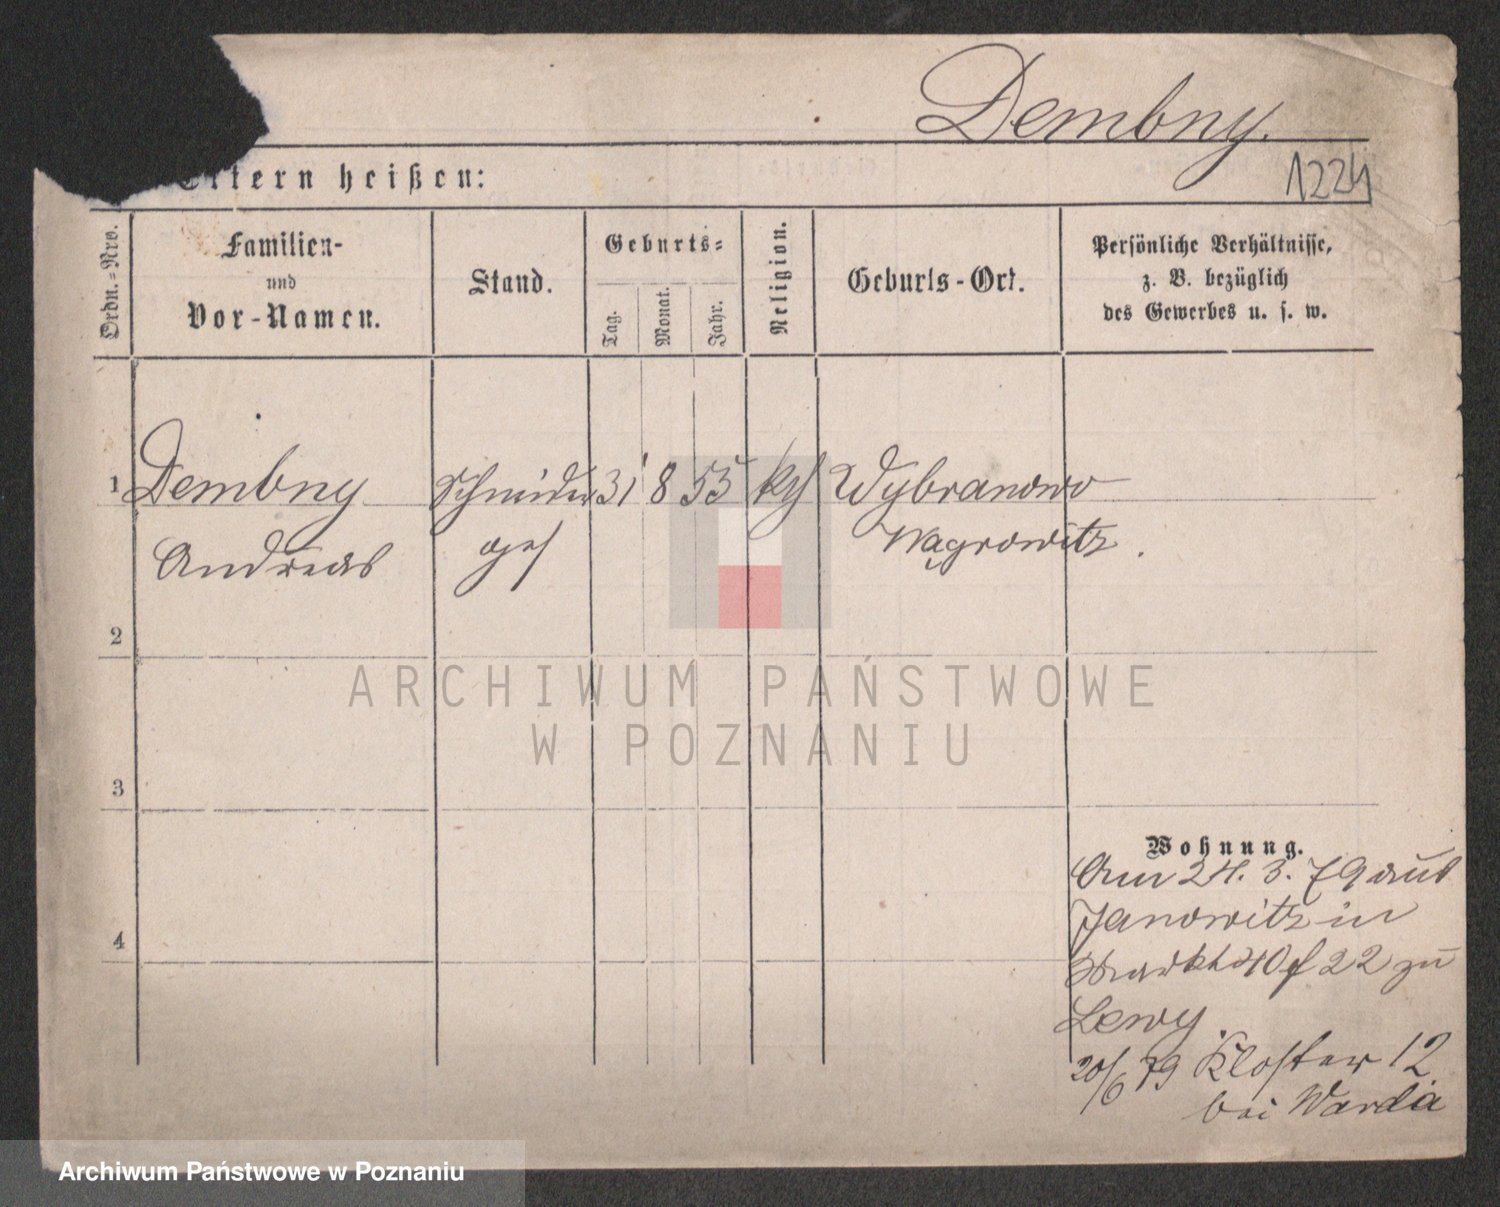 Dembny.
Eltern heißen:
1224
Ordn.-Nro.
Familien-
und
Vor-Namen.
Stand.
Geburts-
Tag.
Monat.
Jahr.
Religion.
Geburts-Ort.
Persönliche Verhältnisse,
z. B. bezüglich
des Gewerbes u. s. w.
1 Dembny Schneider 31 8 53 kth Wybranowo
Andreas ges Wągrowitz.
2
3
4
Wohnung.
Am 24. 3. 79 aus
Janowitz in
40 22 zu
Lewy
20/6 79 Kloster 12
bei Warda
ARCHIWUM PAŃSTWOWE
W POZNANIU
Archiwum Państwowe w Poznaniu